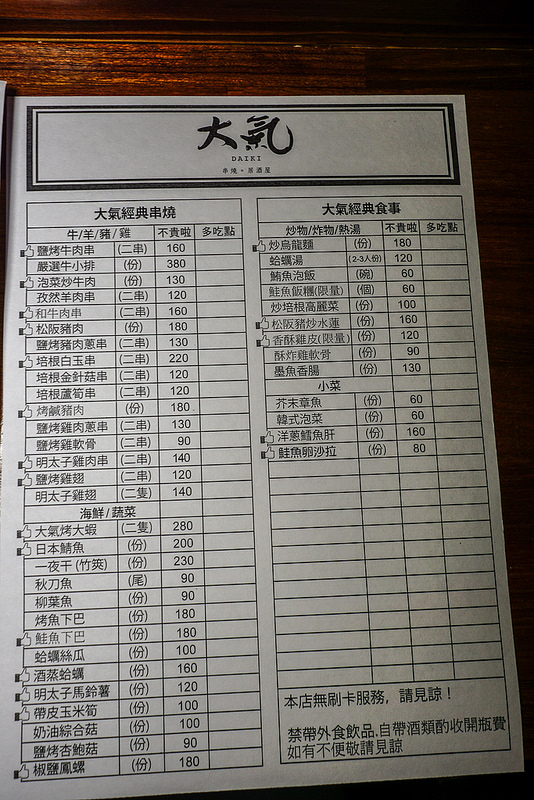 大氣
DAIKI
串燒。居酒屋
大氣經典串燒
牛/羊/豬/雞 不貴啦 多吃點
鹽烤牛肉串 (二串) 160
嚴選牛小排 (份) 380
泡菜炒牛肉 (份) 130
孜然羊肉串 (二串) 120
和牛肉串 (二串) 160
松阪豬肉 (份) 180
鹽烤豬肉蔥串 (二串) 130
培根白玉串 (二串) 220
培根金針菇串 (二串) 120
培根蘆筍串 (二串) 120
烤鹹豬肉 (份) 180
鹽烤雞肉蔥串 (二串) 130
鹽烤雞軟骨 (二串) 90
明太子雞肉串 (二串) 140
鹽烤雞翅 (二串) 120
明太子雞翅 (二隻) 140
海鮮/蔬菜
大氣烤大蝦 (二隻) 280
日本鯖魚 (份) 200
一夜干(竹筴) (份) 230
秋刀魚 (尾) 90
柳葉魚 (份) 90
烤魚下巴 (份) 180
鮭魚下巴 (份) 180
蛤蠣絲瓜 (份) 100
酒蒸蛤蠣 (份) 160
明太子馬鈴薯 (份) 120
帶皮玉米筍 (份) 100
奶油綜合菇 (份) 100
鹽烤杏鮑菇 (份) 90
椒鹽鳳螺 (份) 180
大氣經典食事
炒物/炸物/熱湯 不貴啦 多吃點
炒烏龍麵 (份) 180
蛤蠣湯 (2-3人份) 120
鮪魚泡飯 (碗) 60
鮭魚飯糰(限量) (個) 60
炒培根高麗菜 (份) 100
松阪豬炒水蓮 (份) 160
香酥雞皮(限量) (份) 120
酥炸雞軟骨 (份) 90
墨魚香腸 (份) 130
小菜
芥末章魚 (份) 60
韓式泡菜 (份) 60
洋蔥鱈魚肝 (份) 160
鮭魚卵沙拉 (份) 80
本店無刷卡服務，請見諒！
禁帶外食飲品.自帶酒類酌收開瓶費
如有不便敬請見諒